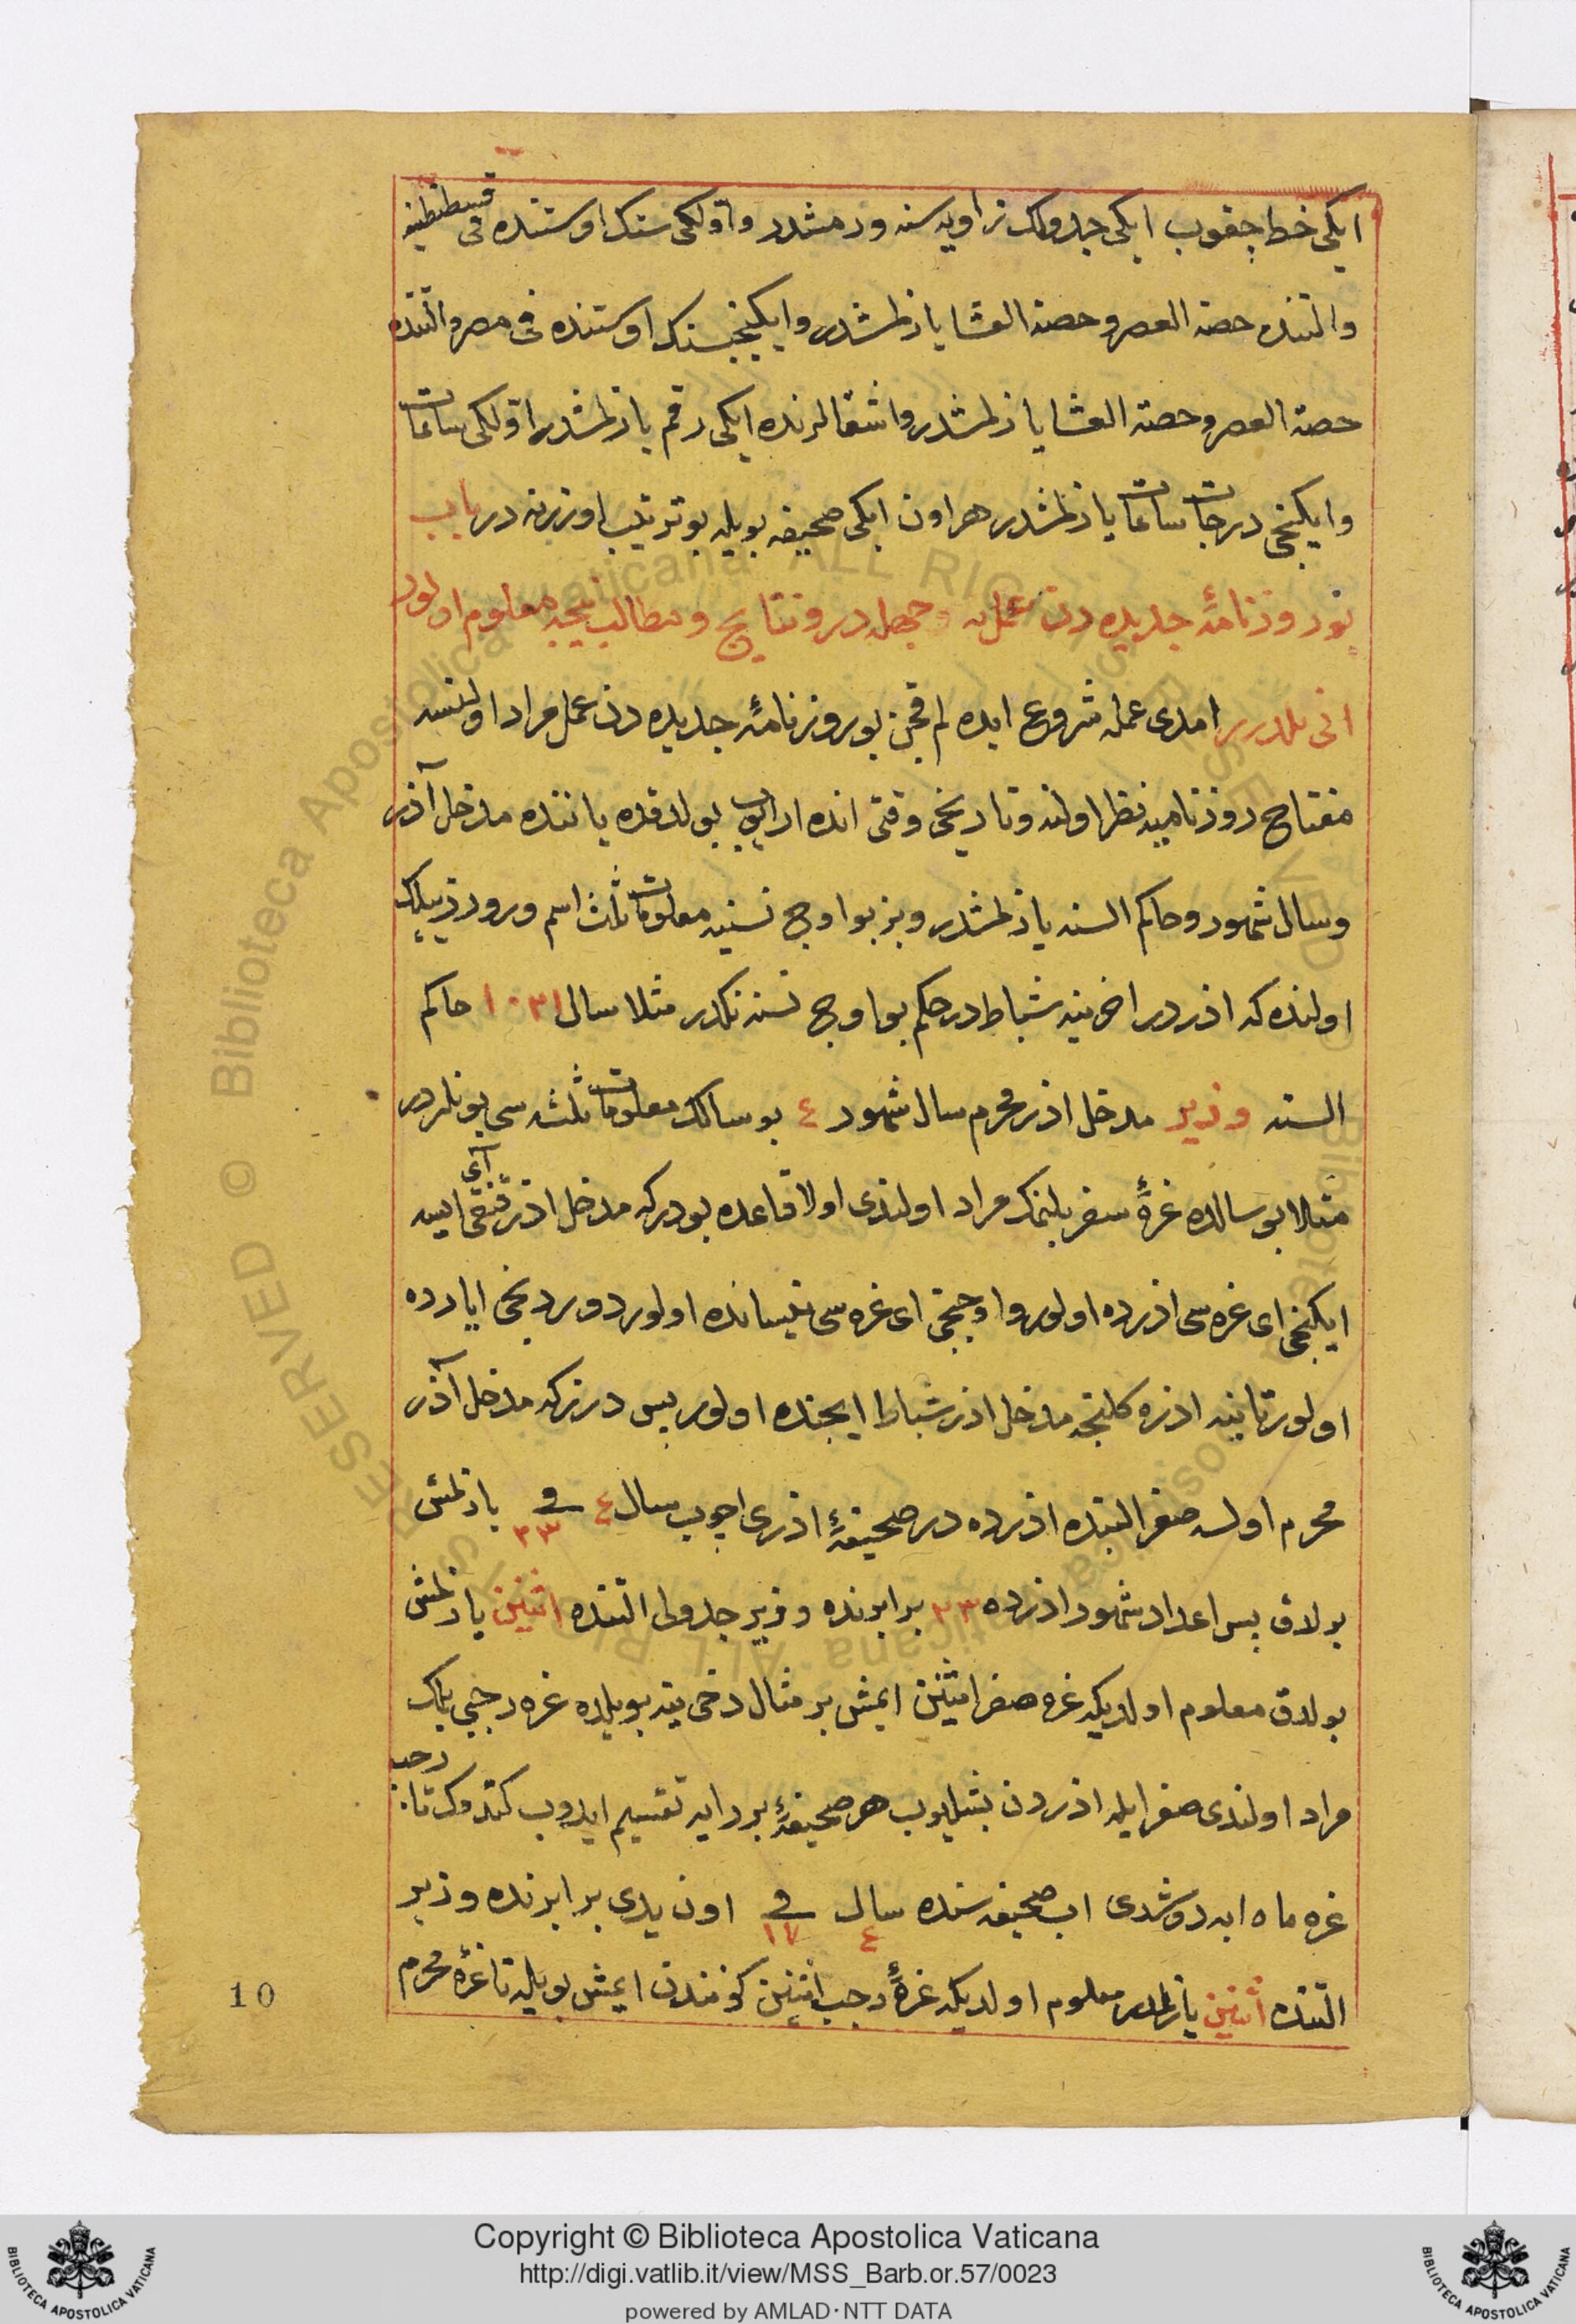 ایکی خط چقوب ایکی جدولک زاویه سنه ورمشدر واولکی سنک اوستنده فی قسطنطنیه
والتنده حصة العصر وحصة العشا یازلمشدر وایکنجیسنک اوستنده فی مصر والتنده
حصة العصر وحصة العشا یازلمشدر واشغالرنده ایکی رقم یازلمشدر اولکی ساعات
وایکنجی درجات ساعات یازلمشدر هر اون ایکی صحیفه بویله بو ترتیب اوزرنه در باب
بو روزنامهٔ جدیده دن عمل نه وجهله در ونتایج ومطالب نیجه معلوم اولور
انی بلدرر امدی عمله شروع ایده لم قچن بو روزنامهٔ جدیده دن عمل مراد اولنسه
مفتاح روزنامیه نظر اولنه وتاریخی وقتی انده ارایوب بولدقده یاننده مدخل آذر
وسال شهور وحاکم السنه یازلمشدر وبز بو اوچ نسنیه معلومات ثلث اسم ویرورز بیلک
اولنده که اذردر اخرینه شباطدر حکم بو اوچ نسنه نکدر مثلا سال ۱۰۳۱ حاکم
السنه وزیر مدخل اذر محرم سال شهور ٤ بو سالک معلومات ثلثه سی بونلردر
مثلا بو سالده غرهٔ سفر بلنمک مراد اولندی اولا قاعده بودرکه مدخل اذر قنقی آی ایسه
ایکنجی ای غره سی اذرده اولور واوچنجی ای غره سی نیسانده اولور دوردنجی ایارده
اولور تا ینه اذره کلنجه مدخل اذر شباط ایچنده اولور پس درزکه مدخل آذر
محرم اولسه صفر البته اذرده در صحیفهٔ اذری اچوب سال ٤ فی ۲۳ یازلمش
بولدق پس اعداد شهور اذرده ۲۳ برابرنده وزیر جدولی التنده اثنین یازلمش
بولدق معلوم اولدیکه غره صفر اثنین ایمش بر مثال دخی ینه بو یلده غره رجبی بلمک
مراد اولندی صفر ایله اذردن بشلیوب هر صحیفهٔ بر ر ایه تقسیم ایدوب کتدوک تا رجب
غره ماه ابه دوشدی اب صحیفه سنده سال ٤ فی ۱۷ اون یدی برابرنده وزیر
التنده اثنین یازلمدر معلوم اولدیکه غرهٔ رجب اثنین کوننده ایمش بویله تا غرهٔ محرم
10
Copyright © Biblioteca Apostolica Vaticana
http://digi.vatlib.it/view/MSS_Barb.or.57/0023
powered by AMLAD·NTT DATA